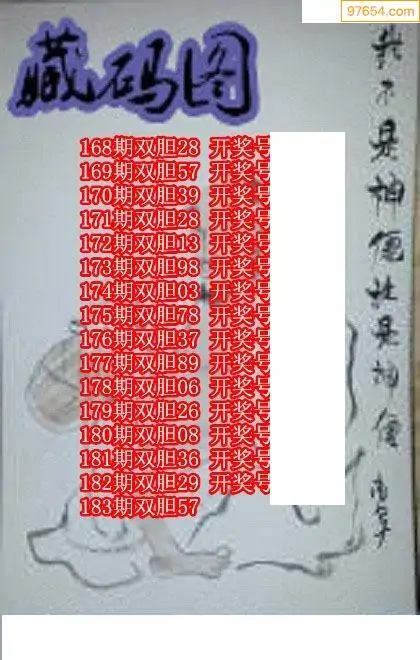 97654.com
藏码图
168期双胆28 开奖号
169期双胆57 开奖号
170期双胆39 开奖号
171期双胆28 开奖号
172期双胆13 开奖号
173期双胆98 开奖号
174期双胆03 开奖号
175期双胆78 开奖号
176期双胆37 开奖号
177期双胆89 开奖号
178期双胆06 开奖号
179期双胆26 开奖号
180期双胆08 开奖号
181期双胆36 开奖号
182期双胆29 开奖号
183期双胆57
我不是神仙 是神仙